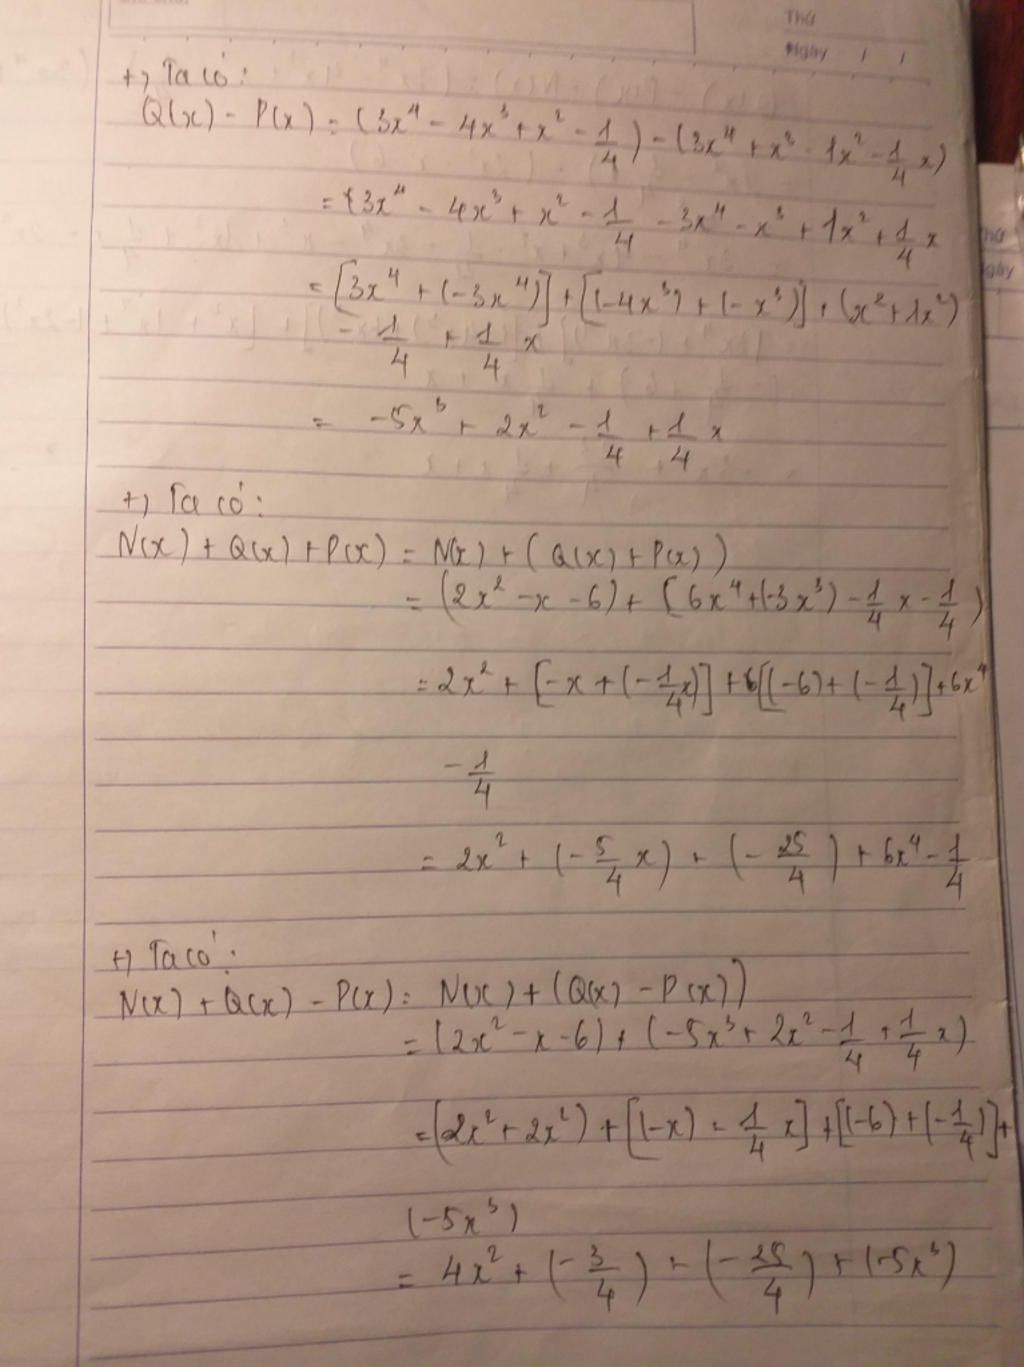 Thứ
Ngày / /
+) Ta có:
Q(x) - P(x) = (3x⁴ - 4x³ + x² - 1/4) - (3x⁴ + x³ - 1x² - 1/4 x)
= {3x⁴ - 4x³ + x² - 1/4 - 3x⁴ - x³ + 1x² + 1/4 x
= [3x⁴ + (-3x⁴)] + [(-4x³) + (-x³)] + (x² + 1x²)
- 1/4 + 1/4 x
= -5x³ + 2x² - 1/4 + 1/4 x
+) Ta có:
N(x) + Q(x) + P(x) = N(x) + (Q(x) + P(x))
= (2x² - x - 6) + (6x⁴ + (-3x³) - 1/4 x - 1/4)
= 2x² + [-x + (-1/4 x)] + [(-6) + (-1/4)] + 6x⁴
- 1/4
= 2x² + (- 5/4 x) + (- 25/4) + 6x⁴ - 1/4
+) Ta có:
N(x) + Q(x) - P(x) = N(x) + (Q(x) - P(x))
= (2x² - x - 6) + (-5x³ + 2x² - 1/4 + 1/4 x)
= (2x² + 2x²) + [(-x) - 1/4 x] + [(-6) + (-1/4)] +
(-5x³)
= 4x² + (- 3/4) + (- 25/4) + (-5x³)